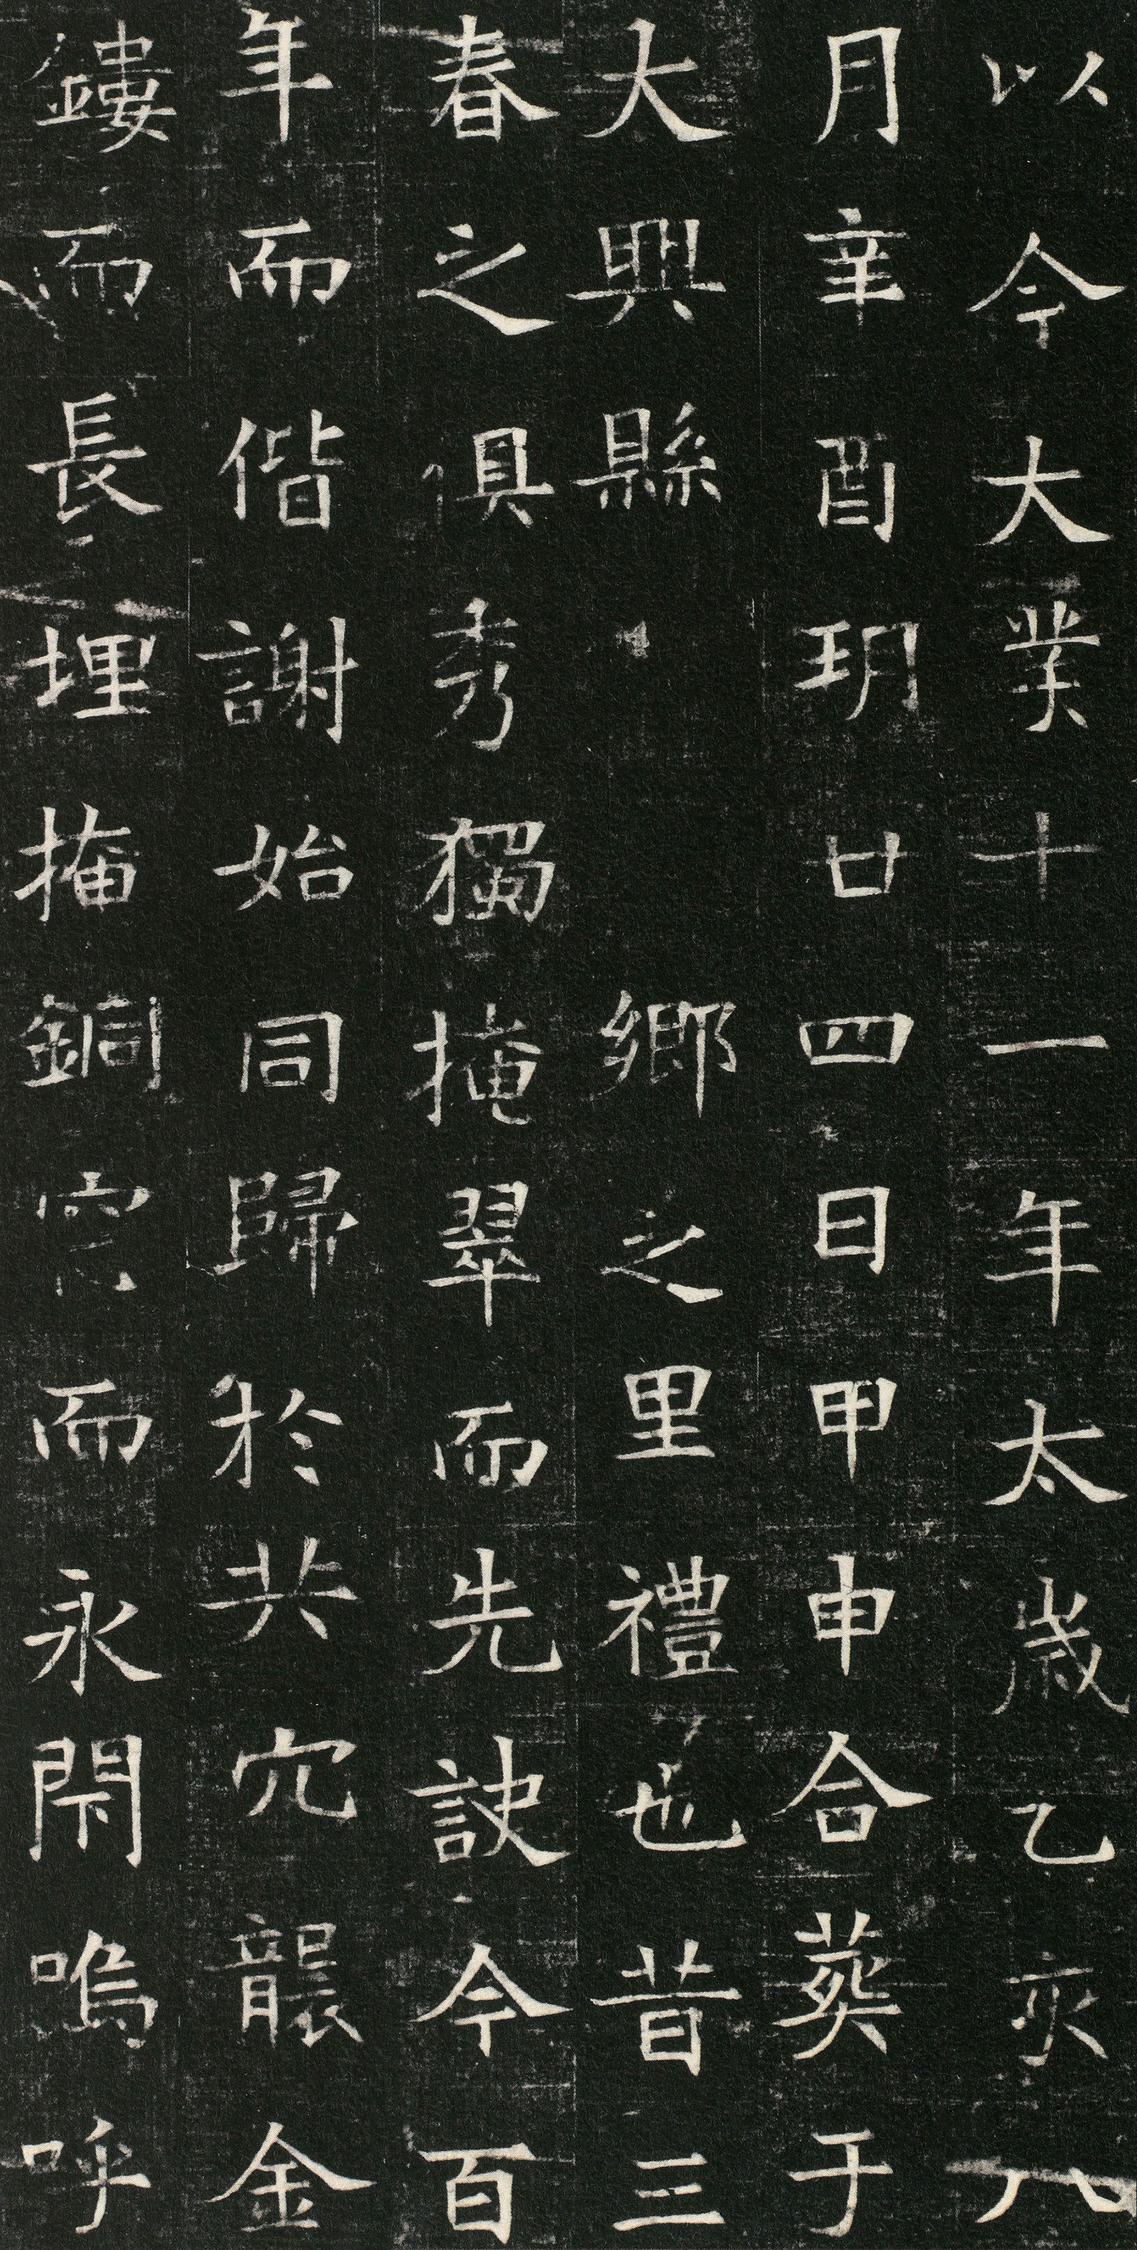 以今大業十一年太歲乙亥八
月辛酉朔廿四日甲申合葬于
大興縣鄉之里禮也昔三
春之俱秀獨掩翠而先訣今百
年而偕謝始同歸於共穴襲金
鏤而長埋掩銅而永閇嗚呼